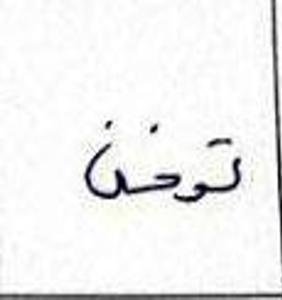 توخن